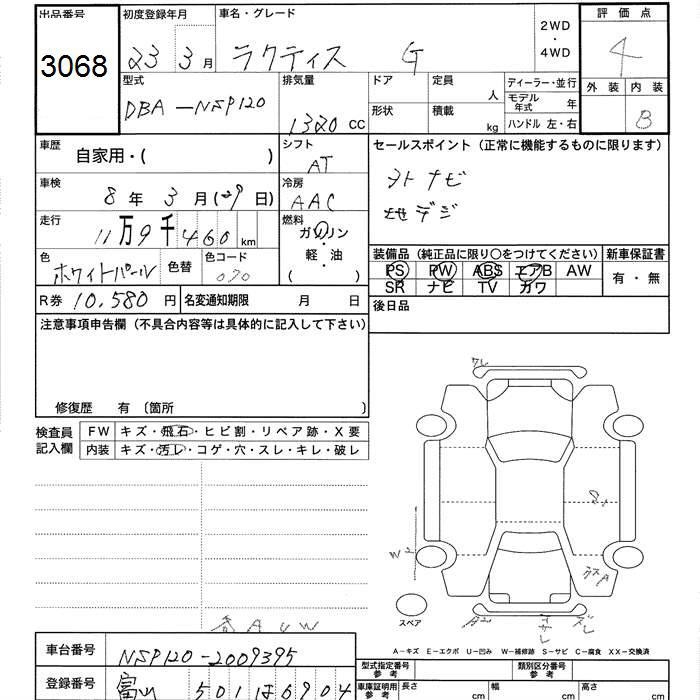 出品番号 初度登録年月 車名・グレード 2WD・4WD 評価点
3068 23 3月 ラクティス G 4
型式 排気量 ドア 定員 人 ディーラー・並行 外装 内装
DBA-NSP120 1320 CC 形状 積載 kg モデル年式 年 B
ハンドル 左・右
車歴 自家用・( ) シフト AT セールスポイント(正常に機能するものに限ります)
車検 8年 3月( 29 日) 冷房 AAC
ナビ
地デジ
走行 11万9千460km 燃料 ガソリン・軽・油( )
装備品(純正品に限り○をつけてください) 新車保証書
色 ホワイトパール 色替 色コード 070
PS PW ABS エアB AW 有・無
SR ナビ TV カワ
R券 10,580円 名変通知期限 月 日 後日品
注意事項申告欄(不具合内容等は具体的に記入して下さい)
修復歴 有〔箇所 〕
検査員記入欄 FW キズ・飛石・ヒビ割・リペア跡・X要
内装 キズ・汚レ・コゲ・穴・スレ・キレ・破レ
W2
スペア
A U W
A-キズ E-エクボ U-凹み W-補修跡 S-サビ C-腐食 XX-交換済
車台番号 NSP120-2009395
型式指定番号 参考 類別区分番号 参考
登録番号 富山 501 ほ 6904
車庫証明用 参考 長さ cm 幅 cm 高さ cm